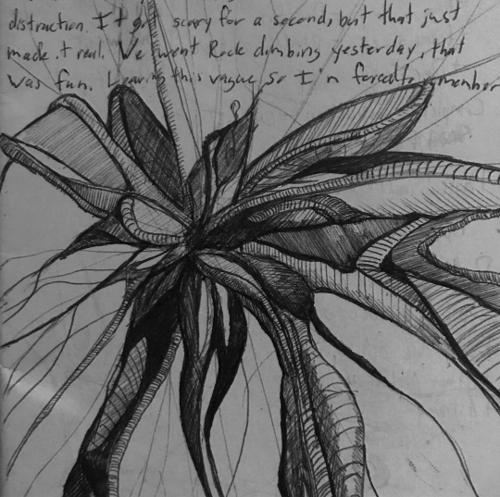 distraction. It got scary for a second, but that just
made it real. We went Rock climbing yesterday, that
was fun. Leaving this vague so I'm forced to remember